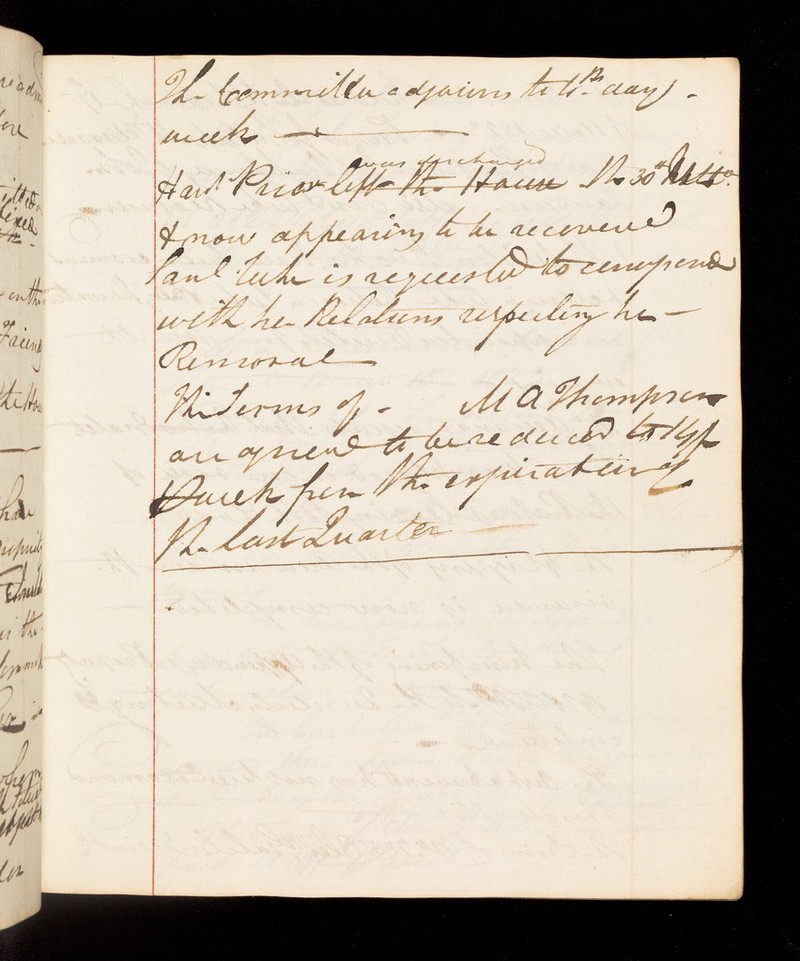 The Committee adjourns to 4th day.
week
was discharged
Hart Prior left the House the 30th Ulto
& now appearing to be recovered
Saml Tuke is requested to correspond
with her Relations respecting her
Removal
The Terms of - M A Thompson
are agreed to be reduced to
week from the expiration of
the last Quarter